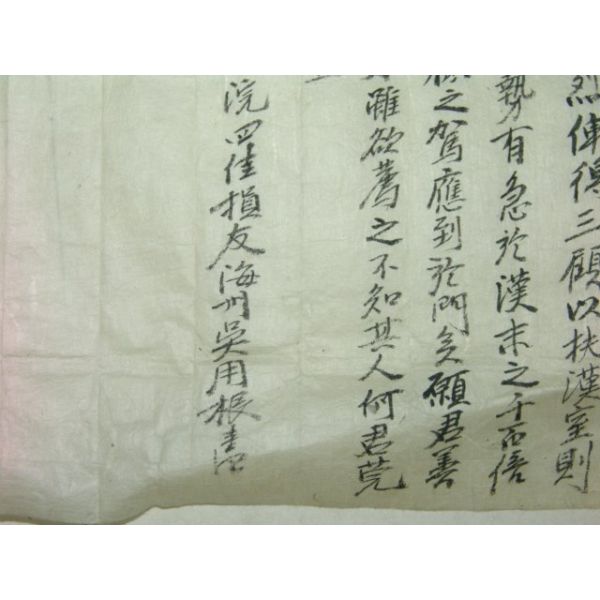 烈俾得三顧以扶漢室則
勢有急於漢末之千百倍
之駕應到於門矣願君善
雖欲薦之不知其人何君莞
浣四佳損友海州吳用根書